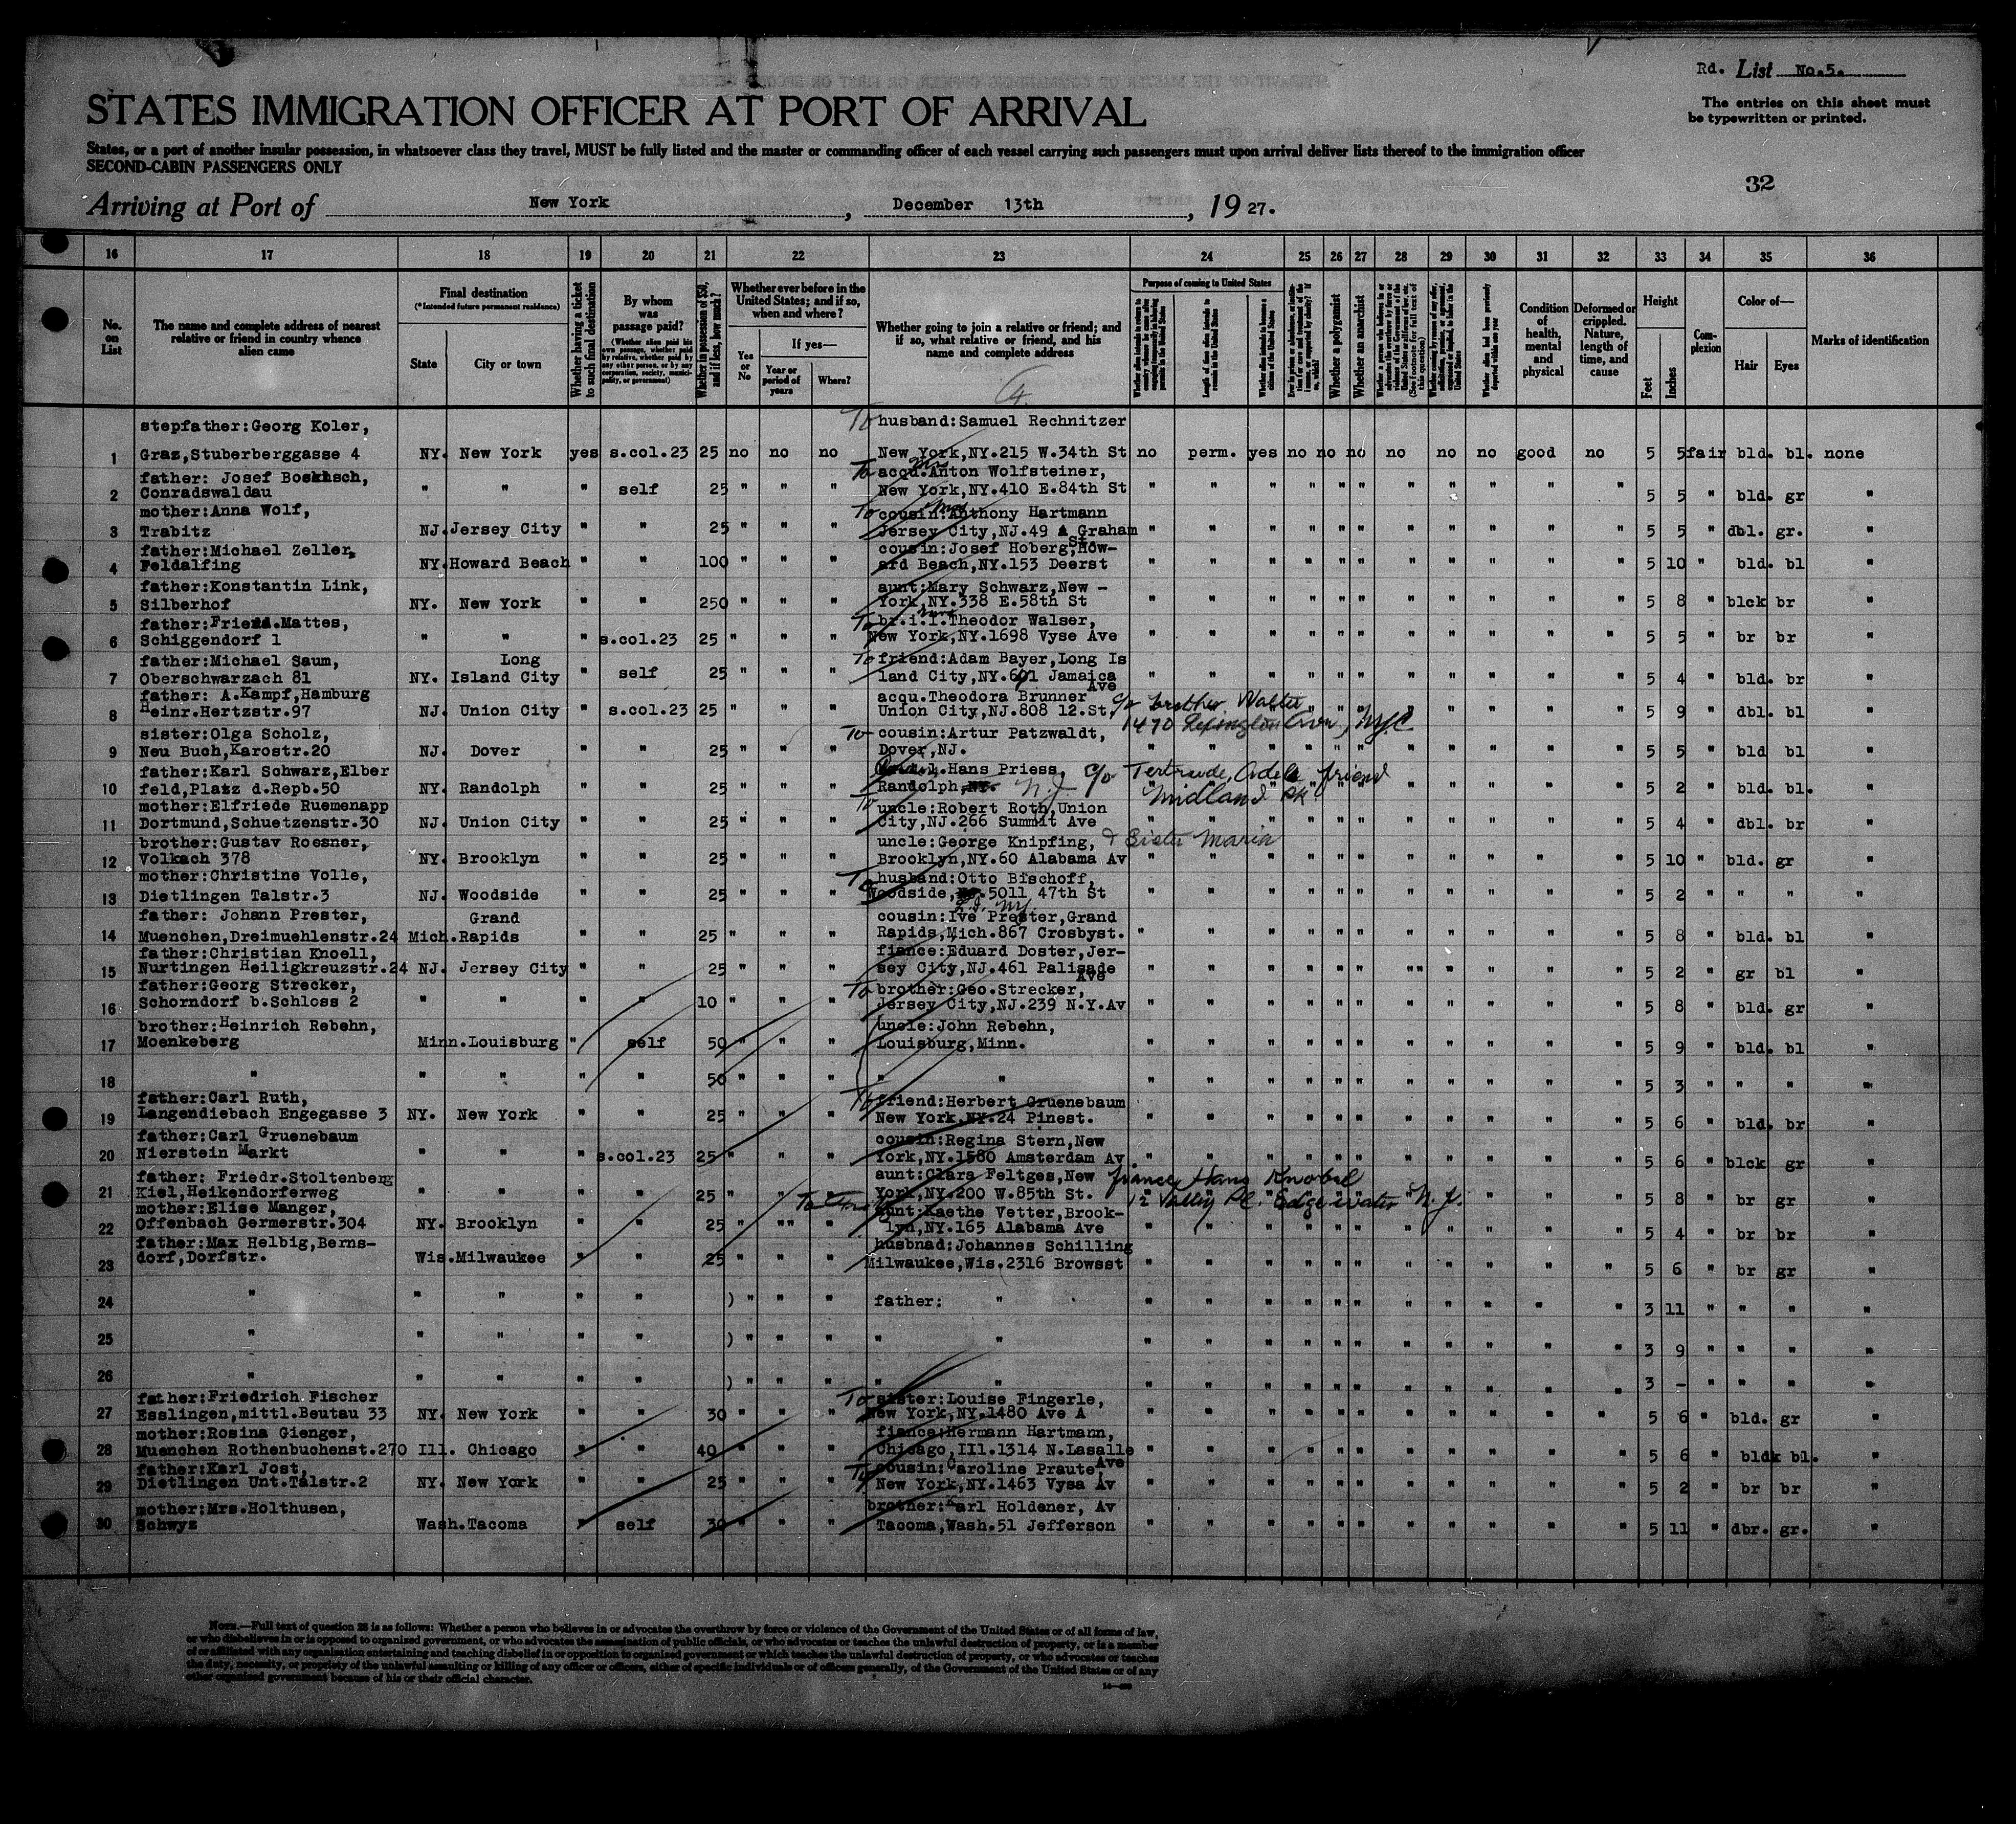 Rd. List No.5.
STATES IMMIGRATION OFFICER AT PORT OF ARRIVAL
The entries on this sheet must
be typewritten or printed.
States, or a port of another insular possession, in whatsoever class they travel, MUST be fully listed and the master or commanding officer of each vessel carrying such passengers must upon arrival deliver lists thereof to the immigration officer
SECOND-CABIN PASSENGERS ONLY
32
Arriving at Port of New York, December 13th, 1927.
16 17 18 19 20 21 22 23 24 25 26 27 28 29 30 31 32 33 34 35 36
No. on List
The name and complete address of nearest relative or friend in country whence alien came
Final destination
(*Intended future permanent residence)
State
City or town
Whether having a ticket to such final destination
By whom was passage paid?
(Whether alien paid his own passage, whether paid by relative, whether paid by any other person, or by any corporation, society, municipality, or government)
Whether in possession of $50, and if less, how much?
Whether ever before in the United States; and if so, when and where?
Yes or No
If yes—
Year or period of years
Where?
Whether going to join a relative or friend; and if so, what relative or friend, and his name and complete address
Purpose of coming to United States
Whether a polygamist
Whether an anarchist
Condition of health, mental and physical
Deformed or crippled. Nature, length of time, and cause
Height
Feet
Inches
Complexion
Color of—
Hair
Eyes
Marks of identification
stepfather:Georg Koler, To husband:Samuel Rechnitzer
1 Graz,Stuberberggasse 4 NY. New York yes s.col.23 25 no no no New York,NY.215 W.34th St no perm. yes no no no no no no good no 5 5 fair bld. bl. none
father: Josef To acqu.Anton Wolfsteiner,
2 Conradswaldau " " " self 25 " " " New York,NY.410 E.84th St " " " " " " " " " " " 5 5 " bld. gr "
mother:Anna Wolf, To cousin:Anthony Hartmann
3 Trabitz NJ.Jersey City " " 25 " " " Jersey City,NJ.49 Graham St. " " " " " " " " " " " 5 5 " dbl. gr. "
father:Michael Zeller, cousin:Josef Hoberg,How-
4 Feldalfing NY.Howard Beach " " 100 " " " ard Beach,NY.153 Deerst " " " " " " " " " " " 5 10 " bld. bl "
father:Konstantin Link, aunt:Mary Schwarz,New -
5 Silberhof NY. New York " " 250 " " " York,NY.338 E.58th St " " " " " " " " " " " 5 8 " blck br "
father: Mattes, To br.i.l.Theodor Walser,
6 Schiggendorf 1 " " " s.col.23 25 " " " New York,NY.1698 Vyse Ave " " " " " " " " " " " 5 5 " br br "
father:Michael Saum, Long To friend:Adam Bayer,Long Is
7 Oberschwarzach 81 NY. Island City " self 25 " " " land City,NY. Jamaica Ave " " " " " " " " " " " 5 4 " bld. br "
father: A.Kampf,Hamburg acqu.Theodora Brunner c/o brother Walter
8 Heinr.Hertzstr.97 NJ. Union City " s.col.23 25 " " " Union City,NJ.808 12.St. 1470 Lexington Ave., N.Y.C. 5 9 " dbl. bl "
sister:Olga Scholz, To cousin:Artur Patzwaldt,
9 Neu Buch,Karostr.20 NJ. Dover " " 25 " " " Dover,NJ. " " " " " " " " " " " 5 5 " bld bl "
father:Karl Schwarz,Elber Hans Priess, c/o friend
10 feld,Platz d.Repb.50 NY. Randolph " " 25 " " " Randolph N.J. Midland Pk " " " " " " 5 2 " bld. bl. "
mother:Elfriede Ruemenapp To uncle:Robert Roth,Union
11 Dortmund,Schuetzenstr.30 NJ. Union City " " 25 " " " City,NJ.266 Summit Ave " " " " " " " " " " " 5 4 " dbl. br "
brother:Gustav Roesner, uncle:George Knipfing, & Sister Maria
12 Volkach 378 NY. Brooklyn " " 25 " " " Brooklyn,NY.60 Alabama Av " " " " " " " " " " " 5 10 " bld. gr "
mother:Christine Volle, To husband:Otto Bischoff,
13 Dietlingen Talstr.3 NJ. Woodside " " 25 " " " Woodside, 5011 47th St L.I. N.Y. " " " " " " " " " " " 5 2 " " " "
father: Johann Prester, Grand cousin:Ive Prester,Grand
14 Muenchen,Dreimuehlenstr.24 Mich.Rapids " " 25 " " " Rapids,Mich.867 Crosbyst. " " " " " " " " " " " 5 8 " bld. bl "
father:Christian Knoell, fiance:Eduard Doster,Jer-
15 Nurtingen Heiligkreuzstr.24 NJ. Jersey City " " 25 " " " sey City,NJ.461 Palisade Ave " " " " " " "" " " " " 5 2 " gr bl "
father:Georg Strecker, To brother:Geo.Strecker,
16 Schorndorf b.Schloss 2 " " " " 10 " " " Jersey City,NJ.239 N.Y.Av " " " " " " " " " " " 5 8 " bld. gr "
brother:Heinrich Rebehn, uncle:John Rebehn,
17 Moenkeberg Minn.Louisburg " self 50 " " " Louisburg,Minn. " " " " " " " " " " " 5 9 " bld. bl "
18 " " " " " 50 " " " " " " " " " " " " " " " " " 5 3 " " " "
father:Carl Ruth, To friend:Herbert Gruenebaum
19 Langendiebach Engegasse 3 NY. New York " " 25 " " " New York,NY.24 Pinest. " " " " " " " " " " " 5 6 " bld. br "
father:Carl Gruenebaum cousin:Regina Stern,New
20 Nierstein Markt " " " s.col.23 25 " " " York,NY.1580 Amsterdam Av " " " " " " " " " " " 5 6 " blck gr "
father: Friedr.Stoltenberg aunt:Clara Feltges,New fiance Hans Knobel
21 Kiel,Heikendorferweg " " " " 25 " " " York,NY.200 W.85th St. 12 Valley Pl. Edgewater N.J. 5 8 " br gr "
mother:Elise Manger, aunt:Kaethe Vetter,Brook-
22 Offenbach Germerstr.304 NY. Brooklyn " " 25 " "" " lyn,NY.165 Alabama Ave " " " " " " " " " " " 5 4 " br br "
father:Max Helbig,Berns- husbnad:Johannes Schilling
23 dorf,Dorfstr. Wis.Milwaukee " " 25 " " " Milwaukee,Wis.2316 Browsst " " " " " " " " " " " 5 6 " br gr "
24 " " " " " ) " " " father: " " " " " " " " " " " " 3 11 " " " "
25 " " " " " ) " " " " " " " " " " " " " " " " " 3 9 " " " "
26 " " " " " ) " " " " " " " " " " " " " " " " " 3 - " " " "
father:Friedrich Fischer To sister:Louise Fingerle,
27 Esslingen,mittl.Beutau 33 NY. New York " " 30 " " " New York,NY.1480 Ave A " " " " " " " " " " " 5 6 " bld. gr "
mother:Rosina Gienger, fiance:Hermann Hartmann,
28 Muenchen Rothenbuchenst.270 Ill. Chicago " " 40 " " " Chicago,Ill.1314 N.Lasalle Ave " " " " " " " " " " " 5 6 " bldk bl. "
father:Karl Jost, To cousin:Caroline Praute
29 Dietlingen Unt.Talstr.2 NY. New York " " 25 " " " New York,NY.1463 Vysa Av " " " " " " " " " " " 5 2 " br br "
mother:Mrs.Holthusen, brother:Karl Holdener, Av
30 Schwyz Wash.Tacoma " self 30 " " " Tacoma,Wash.51 Jefferson " " " " " " " " " " " 5 11 " dbr. gr. "
NOTE.—Full text of question 28 is as follows: Whether a person who believes in or advocates the overthrow by force or violence of the Government of the United States or of all forms of law,
or who disbelieves in or is opposed to organized government, or who advocates the assassination of public officials, or who advocates or teaches the unlawful destruction of property, or is a member
of or affiliated with any organization entertaining and teaching disbelief in or opposition to organized government or which teaches the unlawful destruction of property, or who advocates or teaches
the duty, necessity, or propriety of the unlawful assaulting or killing of any officer or officers, either of specific individuals or of officers generally, of the Government of the United States or of any
other organized government because of his or their official character.